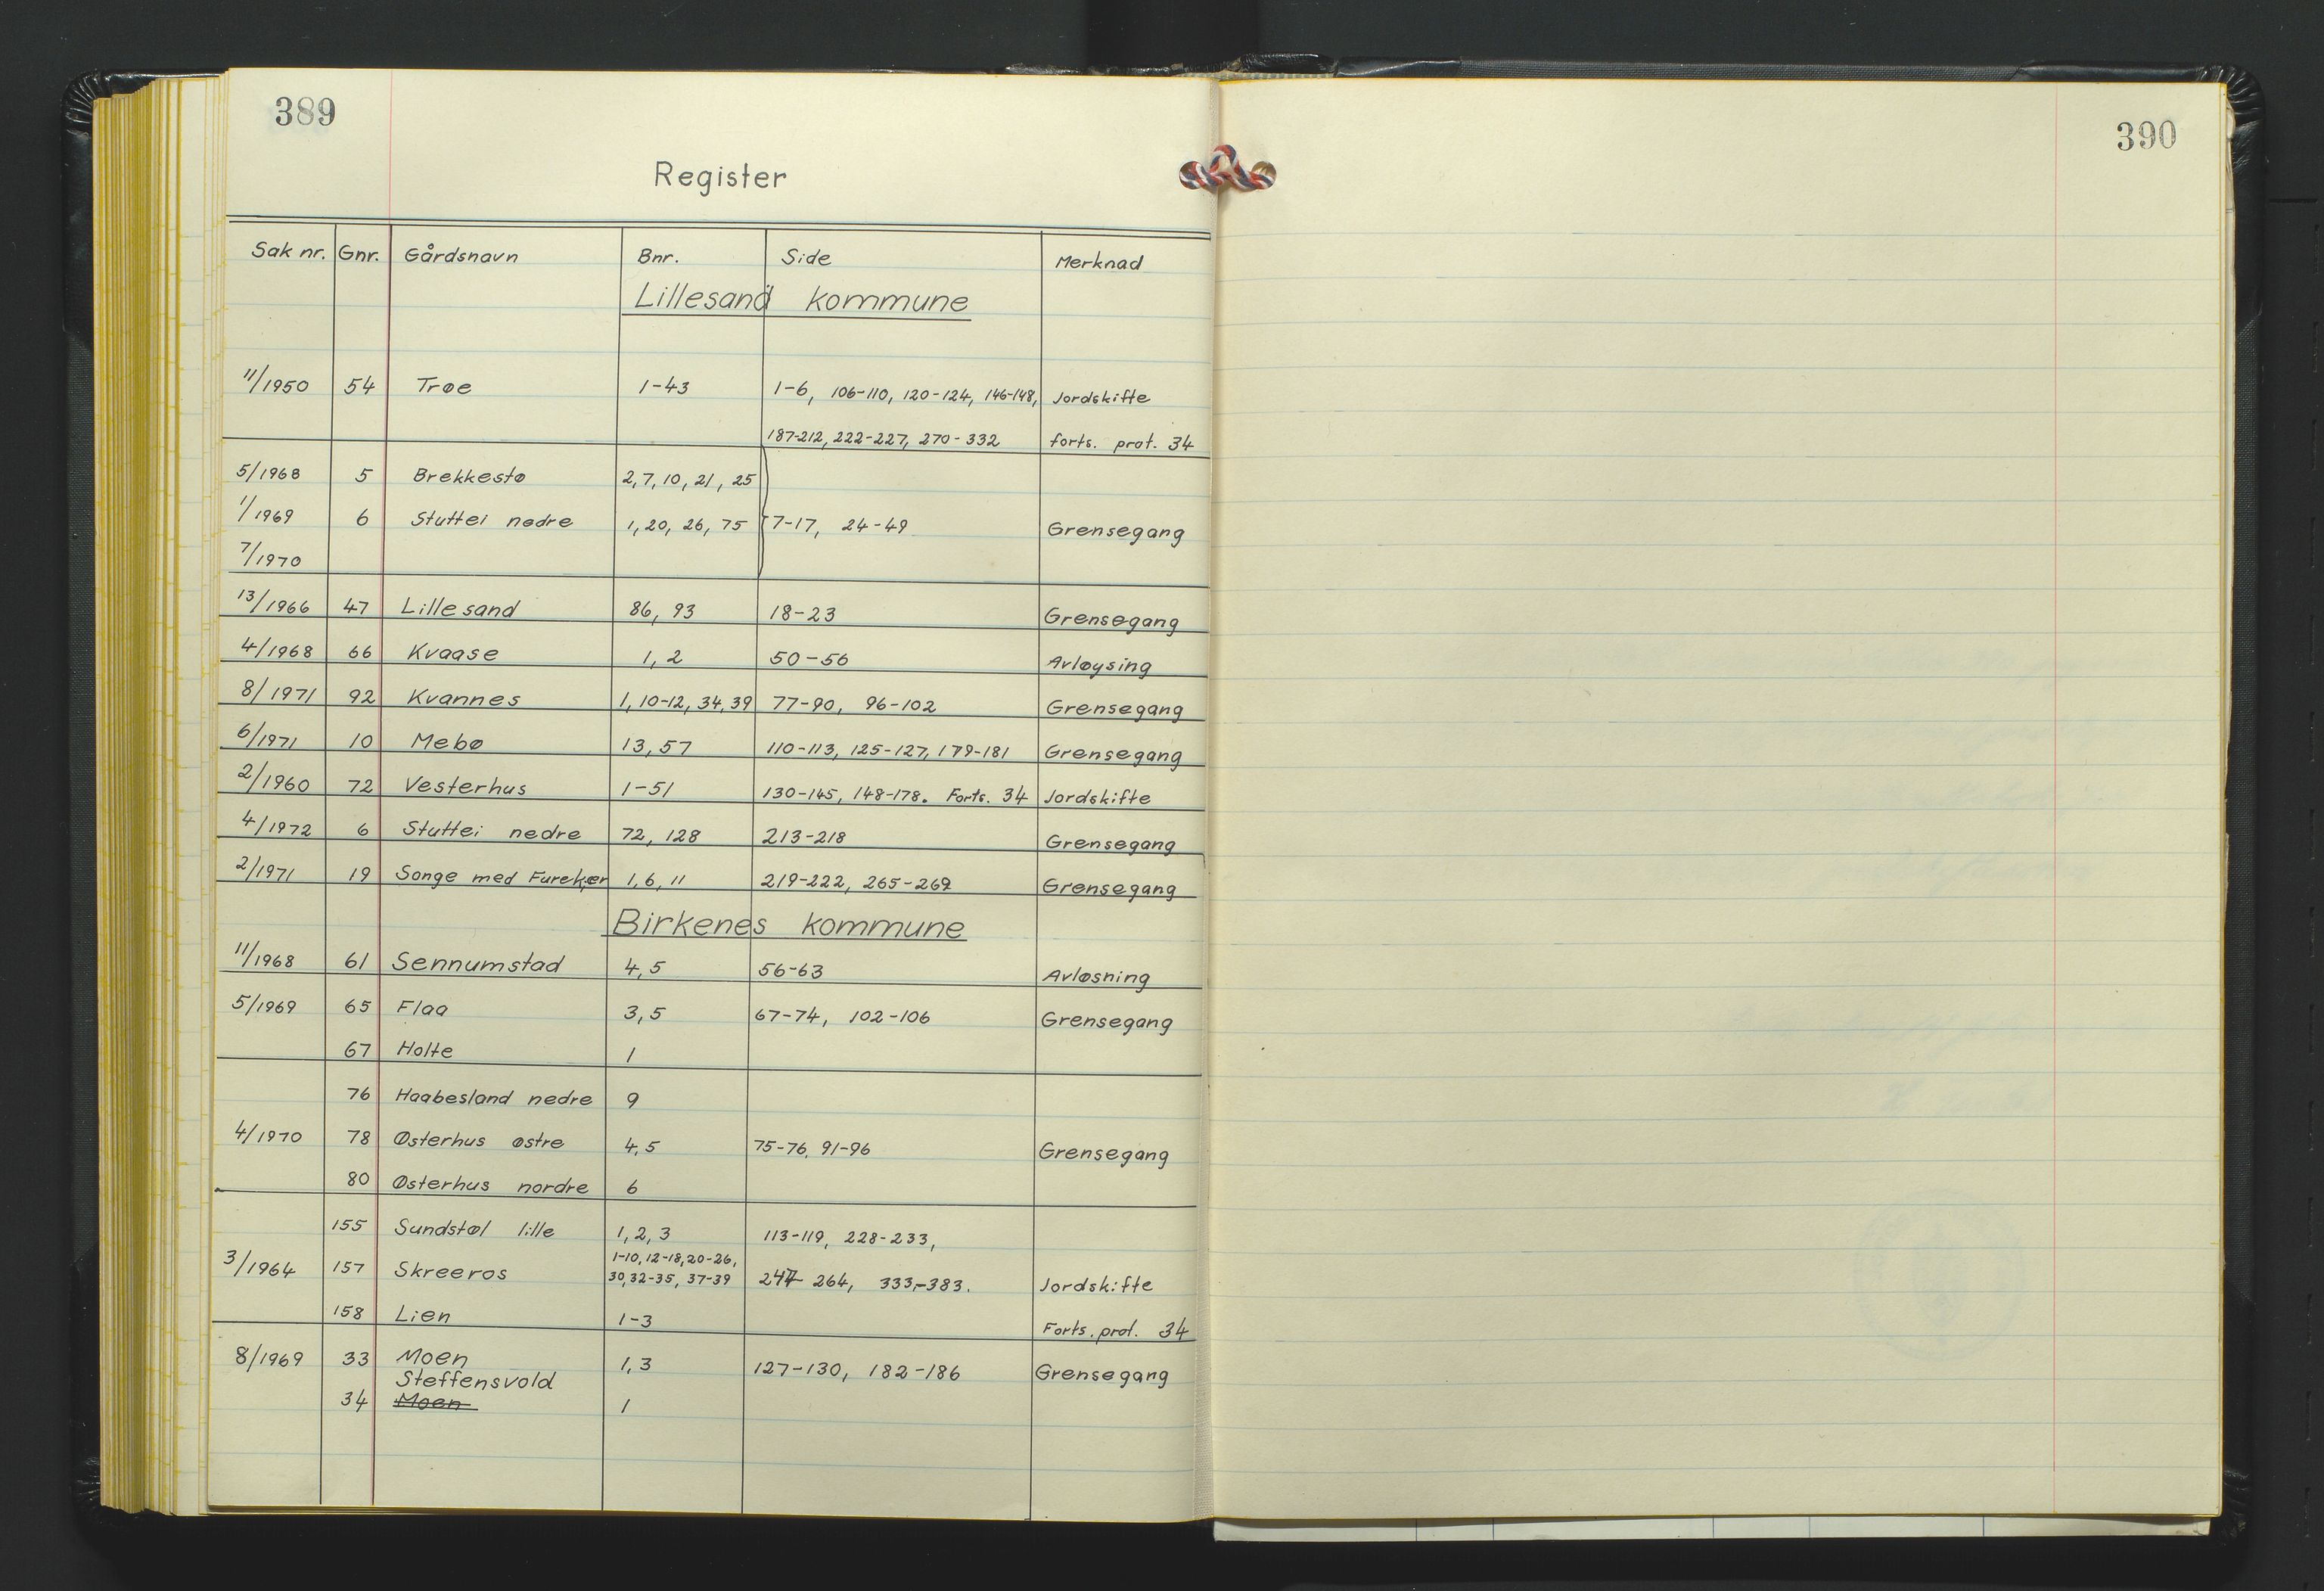 389
Register
Sak nr. Gnr. Gårdsnavn Bnr. Side Merknad
Lillesand kommune
11/1950 54 Trøe 1-43 1-6, 106-110, 120-124, 146-148, Jordskifte
187-212, 222-227, 270-332 forts. prot. 34
5/1968 5 Brekkestø 2,7,10,21,25
1/1969 6 Stuttei nedre 1,20,26,75 7-17, 24-49 Grensegang
7/1970
13/1966 47 Lillesand 86, 93 18-23 Grensegang
4/1968 66 Kvaase 1,2 50-56 Avløysing
8/1971 92 Kvannes 1,10-12,34,39 77-90, 96-102 Grensegang
6/1971 10 Mebø 13,57 110-113, 125-127, 179-181 Grensegang
2/1960 72 Vesterhus 1-51 130-145, 148-178. Forts. 34 Jordskifte
4/1972 6 Stuttei nedre 72, 128 213-218 Grensegang
2/1971 19 Songe med Furekjær 1,6,11 219-222, 265-269 Grensegang
Birkenes kommune
11/1968 61 Sennumstad 4,5 56-63 Avløsning
5/1969 65 Flaa 3,5 67-74, 102-106 Grensegang
67 Holte 1
76 Haabesland nedre 9
4/1970 78 Østerhus østre 4,5 75-76, 91-96 Grensegang
80 Østerhus nordre 6
155 Sundstøl lille 1,2,3 113-119, 228-233,
3/1964 157 Skreeros 1-10,12-18,20-26, 30,32-35,37-39 247-264, 333-383. Jordskifte
158 Lien 1-3 Forts. prot. 34
8/1969 33 Moen 1,3 127-130, 182-186 Grensegang
Steffensvold
34 Moen 1
390